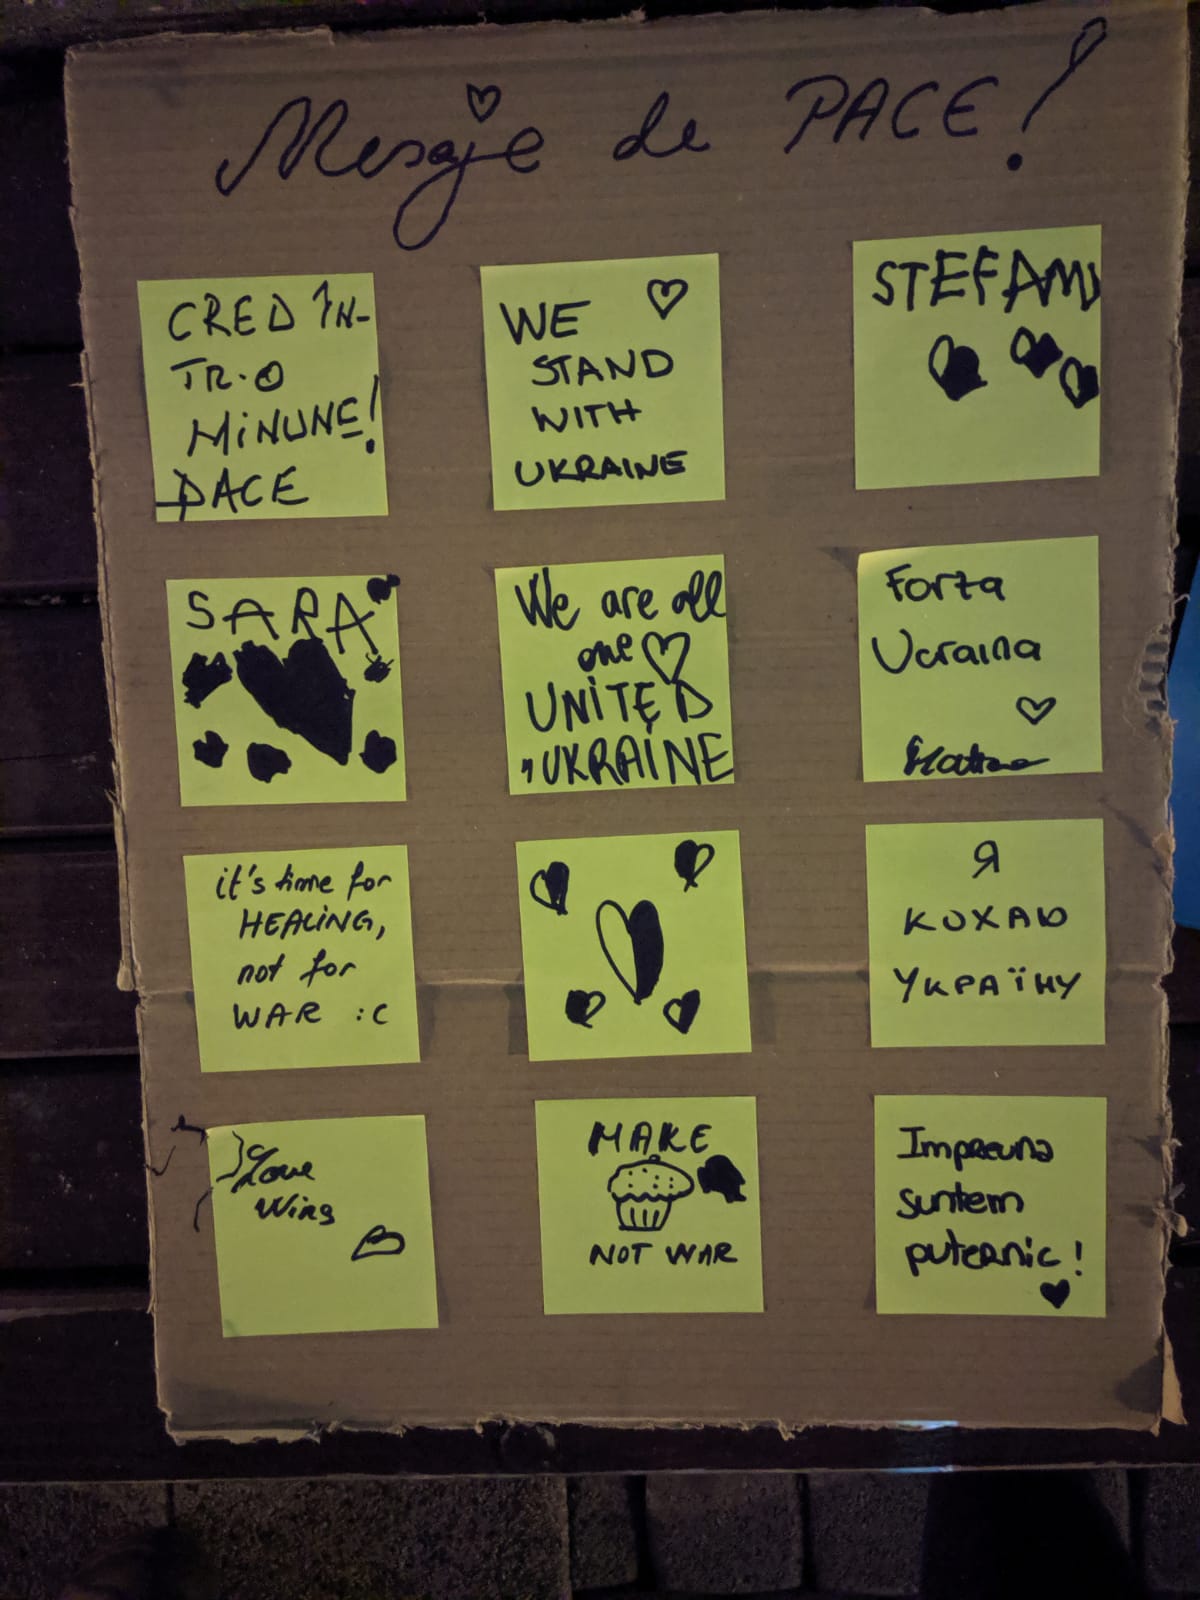 Mesaje de PACE!
CRED ÎN-
TR-O
MINUNE!
PACE
WE
STAND
WITH
UKRAINE
SARA
We are all
one
UNITED
UKRAINE
Forta
Ucraina
it's time for
HEALING,
not for
WAR :C
Я
КОХАЮ
УКРАЇНУ
Love
Wins
MAKE
NOT WAR
Impreuna
suntem
puternic!